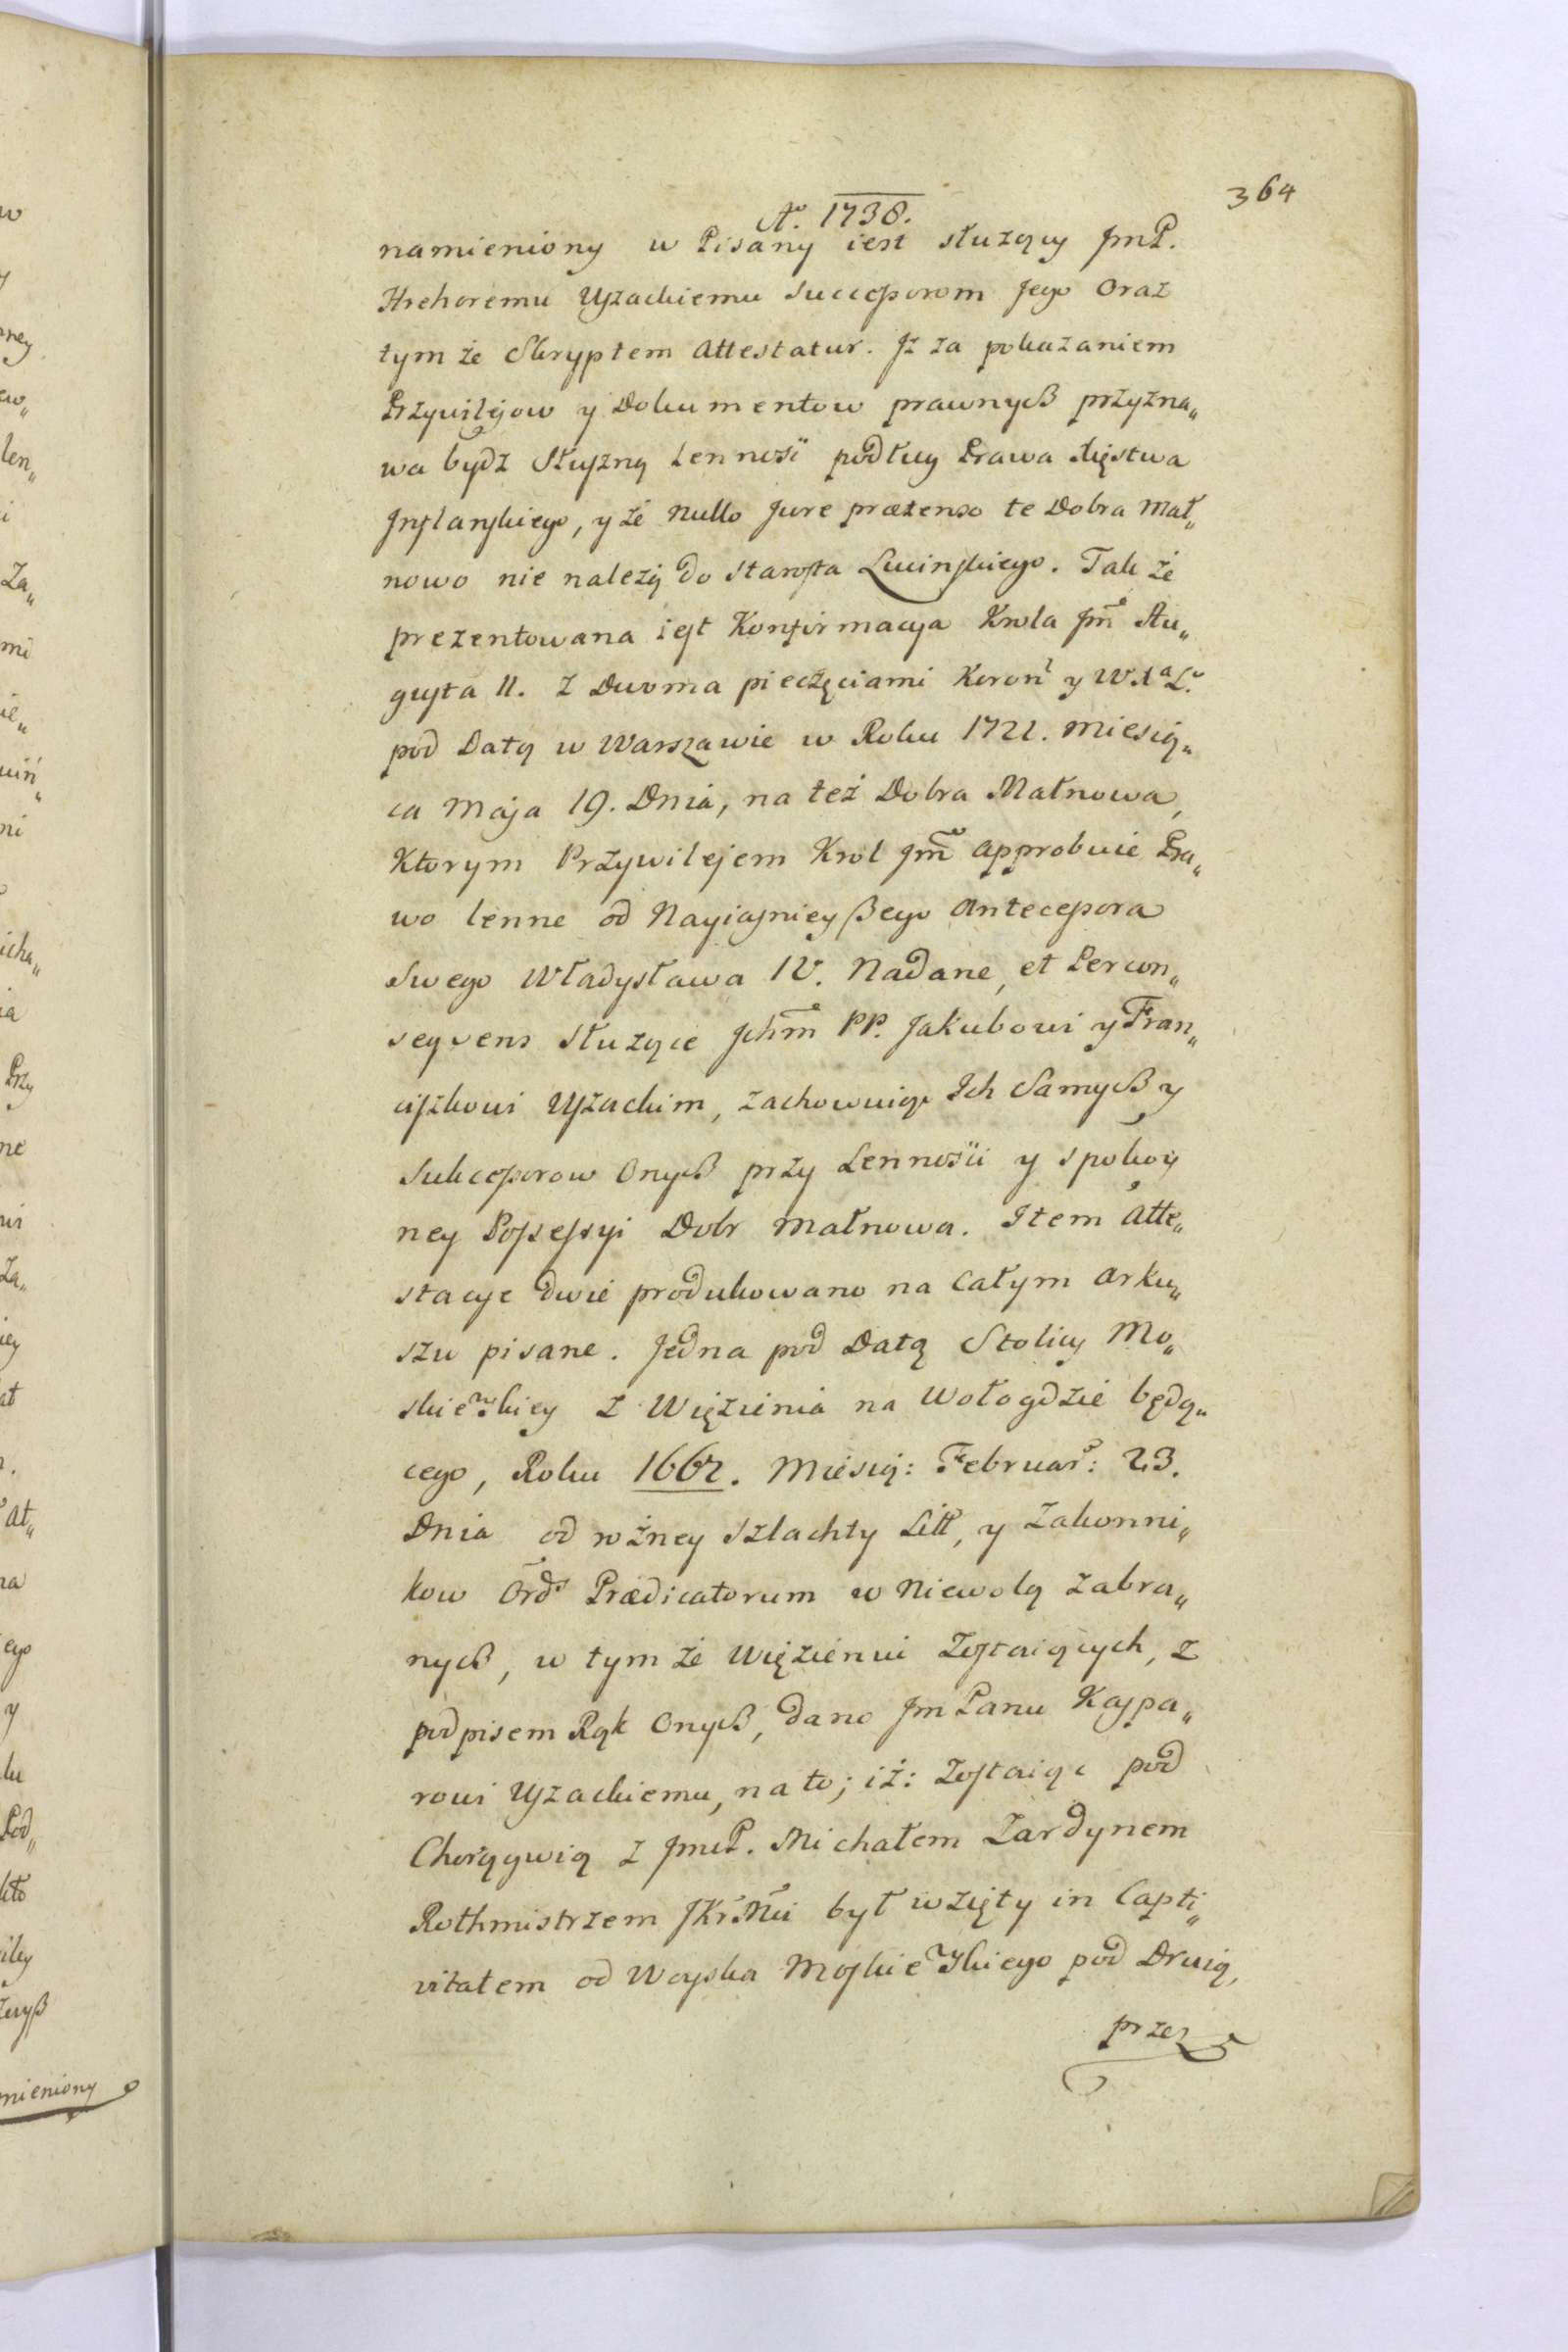 364
Aº. 1738.
namieniony w Pisany iest służący JmP.
Hrehoremu Uszackiemu Succeſsorom Jego Oraz
tym że Skryptem Attestatur. Jż za pokazaniem
Przywilejow y Dokumentow prawnych przyzna„
wa bydz Słuszną Lenność podług Prawa Xięstwa
Inflanskiego, y że nullo Jure praetenso te Dobra Mał„
nowo nie należą do Starosta Lucinskiego. Tak że
prezentowana iest Konfirmacya Krola Jmē Au„
gusta II. z Dwoma pieczęciami Koron̄ y W.Xª Lº.
pod Datą w Warszawie w Roku 1721. Miesią„
ca Maja 19. Dnia, na też Dobra Małnowa,
Ktorym Przywilejem Krol Jmē approbuie Pra„
wo lenne od Nayiaśnieyßego Anteceſsora
Swego Władysława IV. Nadane, et Percon„
sequens Służące Jchm̄ PP. Jakubowi y Fran„
ciszkowi Uszackim, zachowuiąc Ich Samych y
Sukceſsorow Onych przy Lennośći y spokoy
ney Poſseſsyi Dobr Małnowa. Item Atte„
stacye dwie produkowano na całym Arku„
szu pisane. Jedna pod Datą Stolicy Mo„
skiewskiey z Więzienia na Wołogdzie będą„
cego, Roku 1662. Miesią: Februar̄: 23.
Dnia od rożney Szlachty Litt, y Zakonni„
kow Ord̄s Prædicatorum w Niewolą zabra„
nych, w tym że więzieniu Zostaiących, z
podpisem Rąk Onych, dano Jm Panu Kaspa„
rowi Uszackiemu, na to; iż: Zostaiąc pod
Chorągwią z JmcP. Michałem Zardynem
Rothmistrzem JKr̄Mci był wzięty in Capti„
vitatem od Woyska Moskiewskiego pod Druią,
przez